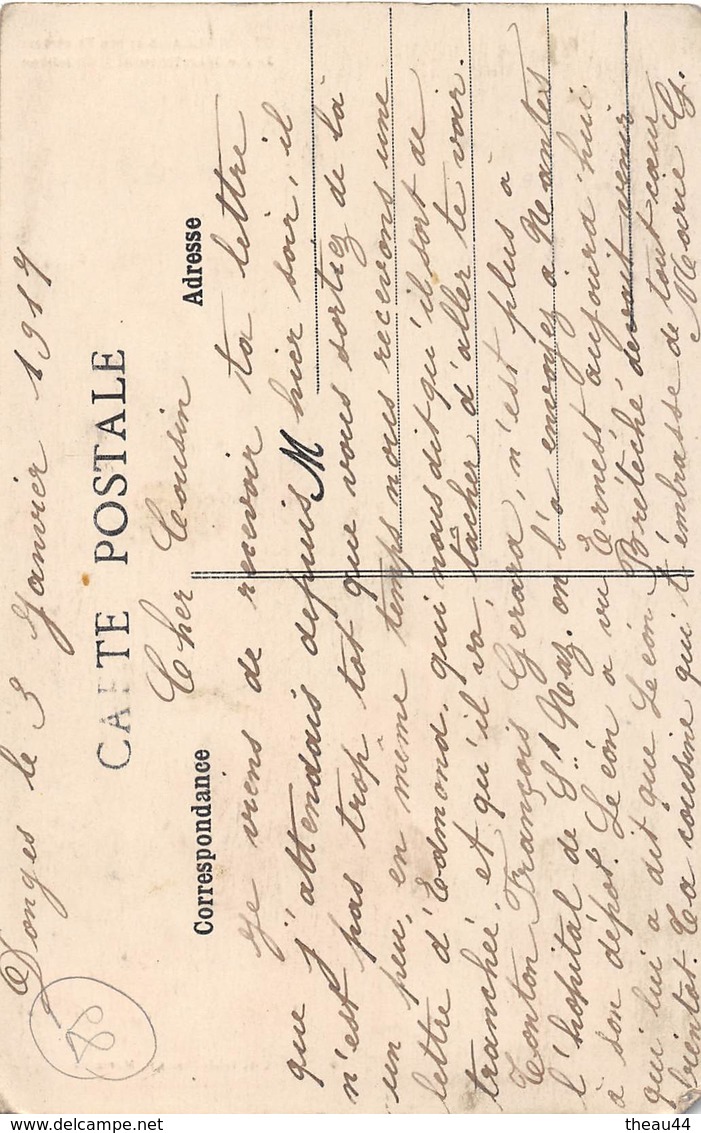 Donges le 3 Janvier 1917
CARTE POSTALE
Correspondance
Adresse
Cher Cousin
Je viens de recevoir ta lettre
que j'attendais depuis M hier soir, il
n'est pas trop tot que vous sortiez de là
un peu, en même temps nous recevons une
lettre d'Edmond, qui nous dit qu'il sort de
tranchée, et qu'il va tâcher d'aller te voir.
Tonton François Gérard, n'est plus à
l'hopital de St Naz. on l'a envoyez à Nantes
a son dépot. Lécon a vu Ernest aujourd'hui
qui lui a dit que Lécon Bréteché devait venir
bientot. Ta cousine qui t'embrasse de tout cœur
Marie G.
85
theau44